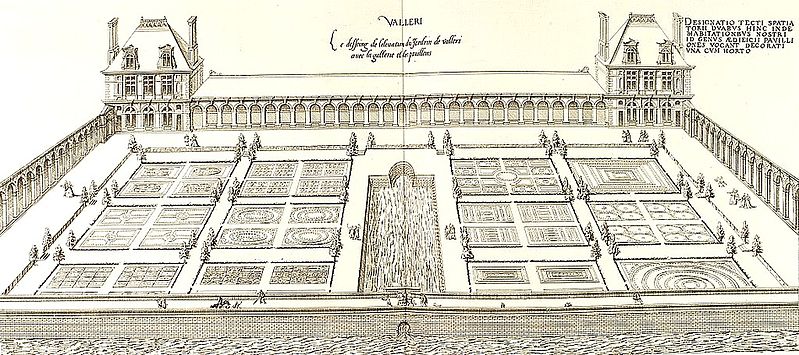 VALLERI
Le desseing de l'elevation du Jardin de valleri
avec la gallerie et les pavillons
DESIGNATIO TECTI SPATIA
TORII DVABVS HINC INDE
HABITATIONBVS NOSTRI
ID GENVS ÆDIFICII PAVILLI
ONES VOCANT DECORATI
VNA CVM HORTO